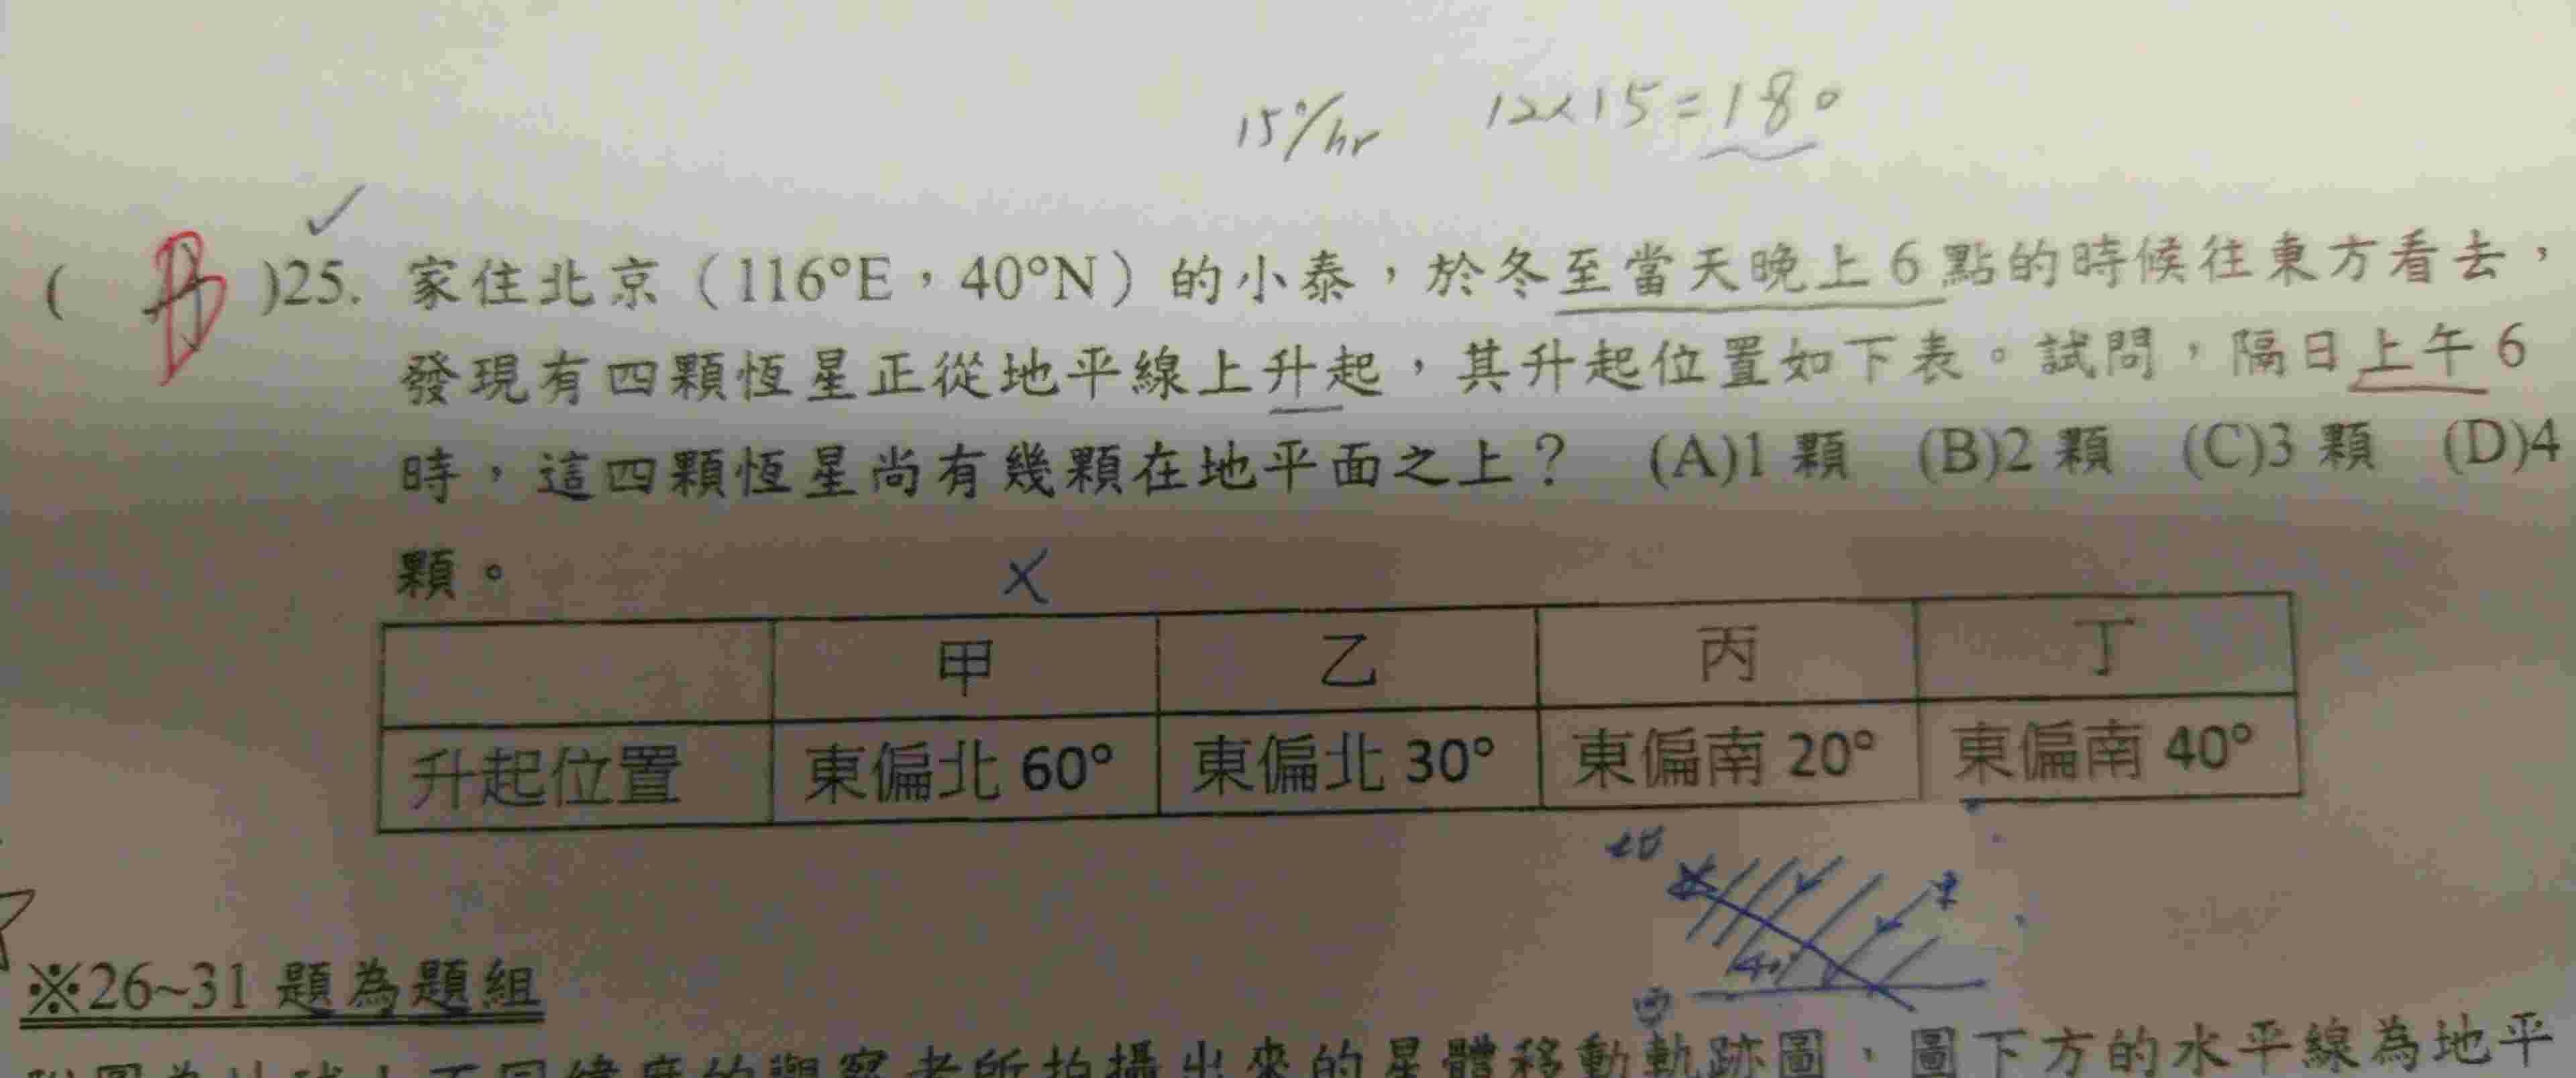 15°/hr 12×15=180
( B )25. 家住北京（116°E，40°N）的小泰，於冬至當天晚上 6 點的時候往東方看去，
發現有四顆恆星正從地平線上升起，其升起位置如下表。試問，隔日上午 6
時，這四顆恆星尚有幾顆在地平面之上？ (A)1 顆 (B)2 顆 (C)3 顆 (D)4
顆。
甲 乙 丙 丁
升起位置 東偏北 60° 東偏北 30° 東偏南 20° 東偏南 40°
40°
※26~31 題為題組
附圖為地球上不同緯度的觀察者所拍攝出來的星體移動軌跡圖，圖下方的水平線為地平